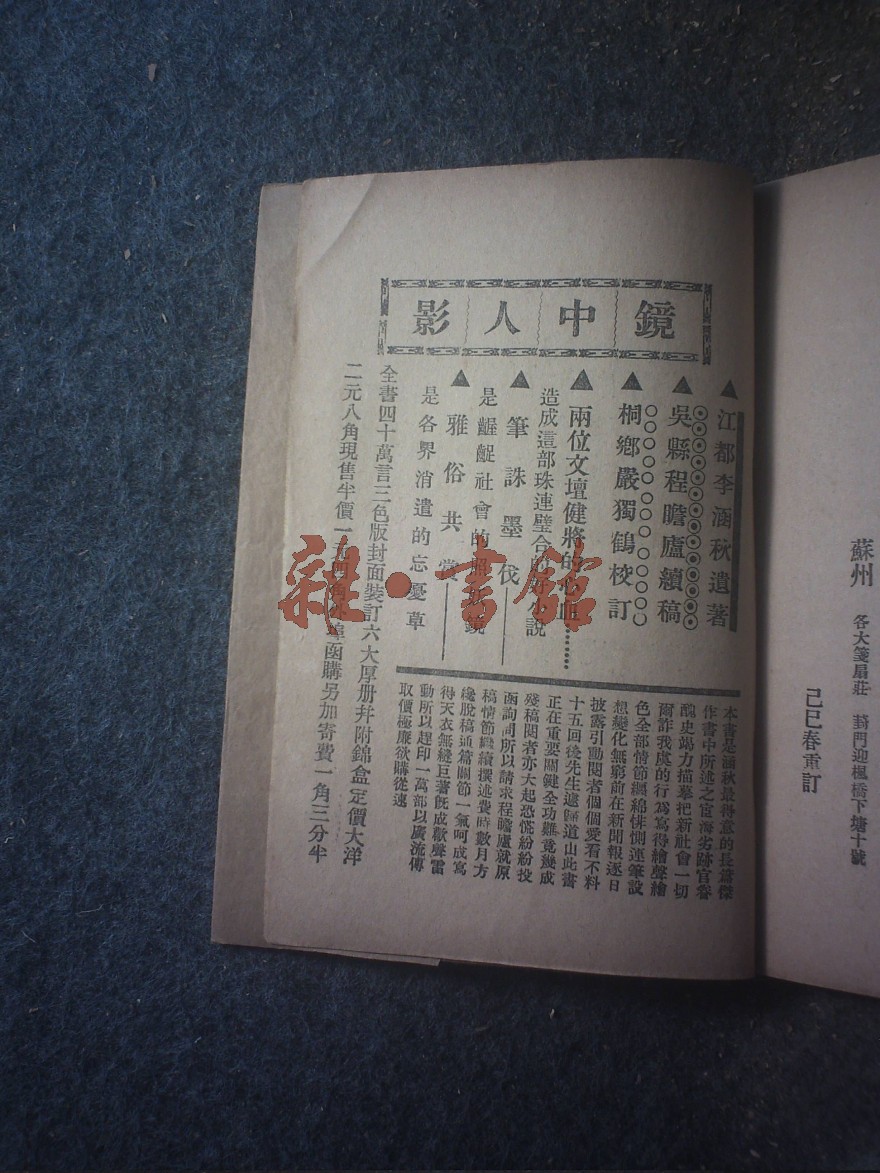 蘇州 各大箋扇莊 葑門迎楓橋下塘十號
己巳春重訂
鏡中人影
▲江都李涵秋遺著
▲吳縣程瞻廬續稿
▲桐鄉嚴獨鶴校訂
▲兩位文壇健將的心血………
造成這部珠連璧合的好小說
▲筆誅墨伐——
是齷齪社會的照妖鏡
▲雅俗共賞——
是各界消遣的忘憂草
本書是涵秋最得意的長篇傑
作書中所述之宦海劣跡官眷
醜史竭力描摹把新社會一切
爾詐我虞的行為寫得繪聲繪
色全部情節纏綿悱惻運筆設
想變化無窮前在新聞報逐日
披露引動閱者個個愛看不料
十五回後先生遽歸道山此書
正在重要關鍵全功難竟幾成
殘稿閱者亦大起恐慌紛紛投
函詢問所以請求程瞻廬就原
稿情節繼續撰述費時數月方
纔脫稿通篇關節一氣呵成寫
得天衣無縫巨著旣成歡聲雷
動所以趕印一萬部以廣流傳
取價極廉欲購從速
全書四十萬言三色版封面裝訂六大厚册并附錦盒定價大洋
二元八角現售半價一元四角外埠函購另加寄費一角三分半
雜·書館